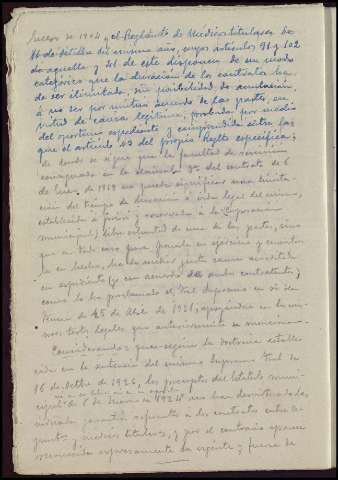 Enero de 1904 y el Reglamento de Médicos titulares de
11 de Octubre del mismo año, cuyos artículos 91 y 102
de aquella y 41 de este disponen de un modo
categórico que la duración de los contratos ha
de ser ilimitada, sin posibilidad de anulación
á no ser por mutuo acuerdo de las partes, en
virtud de causa legítima, probada por medio
del oportuno expediente y comprendida entre las
que el artículo 43 del propio Reglto especifica;
de donde se sigue que la facultad de rescisión
consignada en la cláusula 3ª del contrato de 6
de de 1919 no puede significar una limita-
ción del tiempo de duración á orden legal del mismo,
establecida á priori y reservada á la Corporación
municipal, libre voluntad de una de las partes, sino
que en todo caso para ponerla en ejercicio y convertir-
la en hecho, ha de mediar justa causa acreditada
en expediente (y con acuerdo de ambos contratantes)
como lo ha proclamado el Tral Supremo en su sen-
tencia de 25 de Abril de 1921, apoyándose en los mis-
mos textos legales que anteriormente se mencionan.
Considerando: que según la doctrina estable-
cida en la sentencia del mismo Supremo Tral de
16 de Octbre de 1926, los preceptos del Estatuto muni-
cipal de 8 de Marzo de 1924 no han desvirtuado las
garantías referentes á los contratos entre Ayun-
tamientos y médicos titulares, y por el contrario aparece
reconocida expresamente la vigente y fuerza de